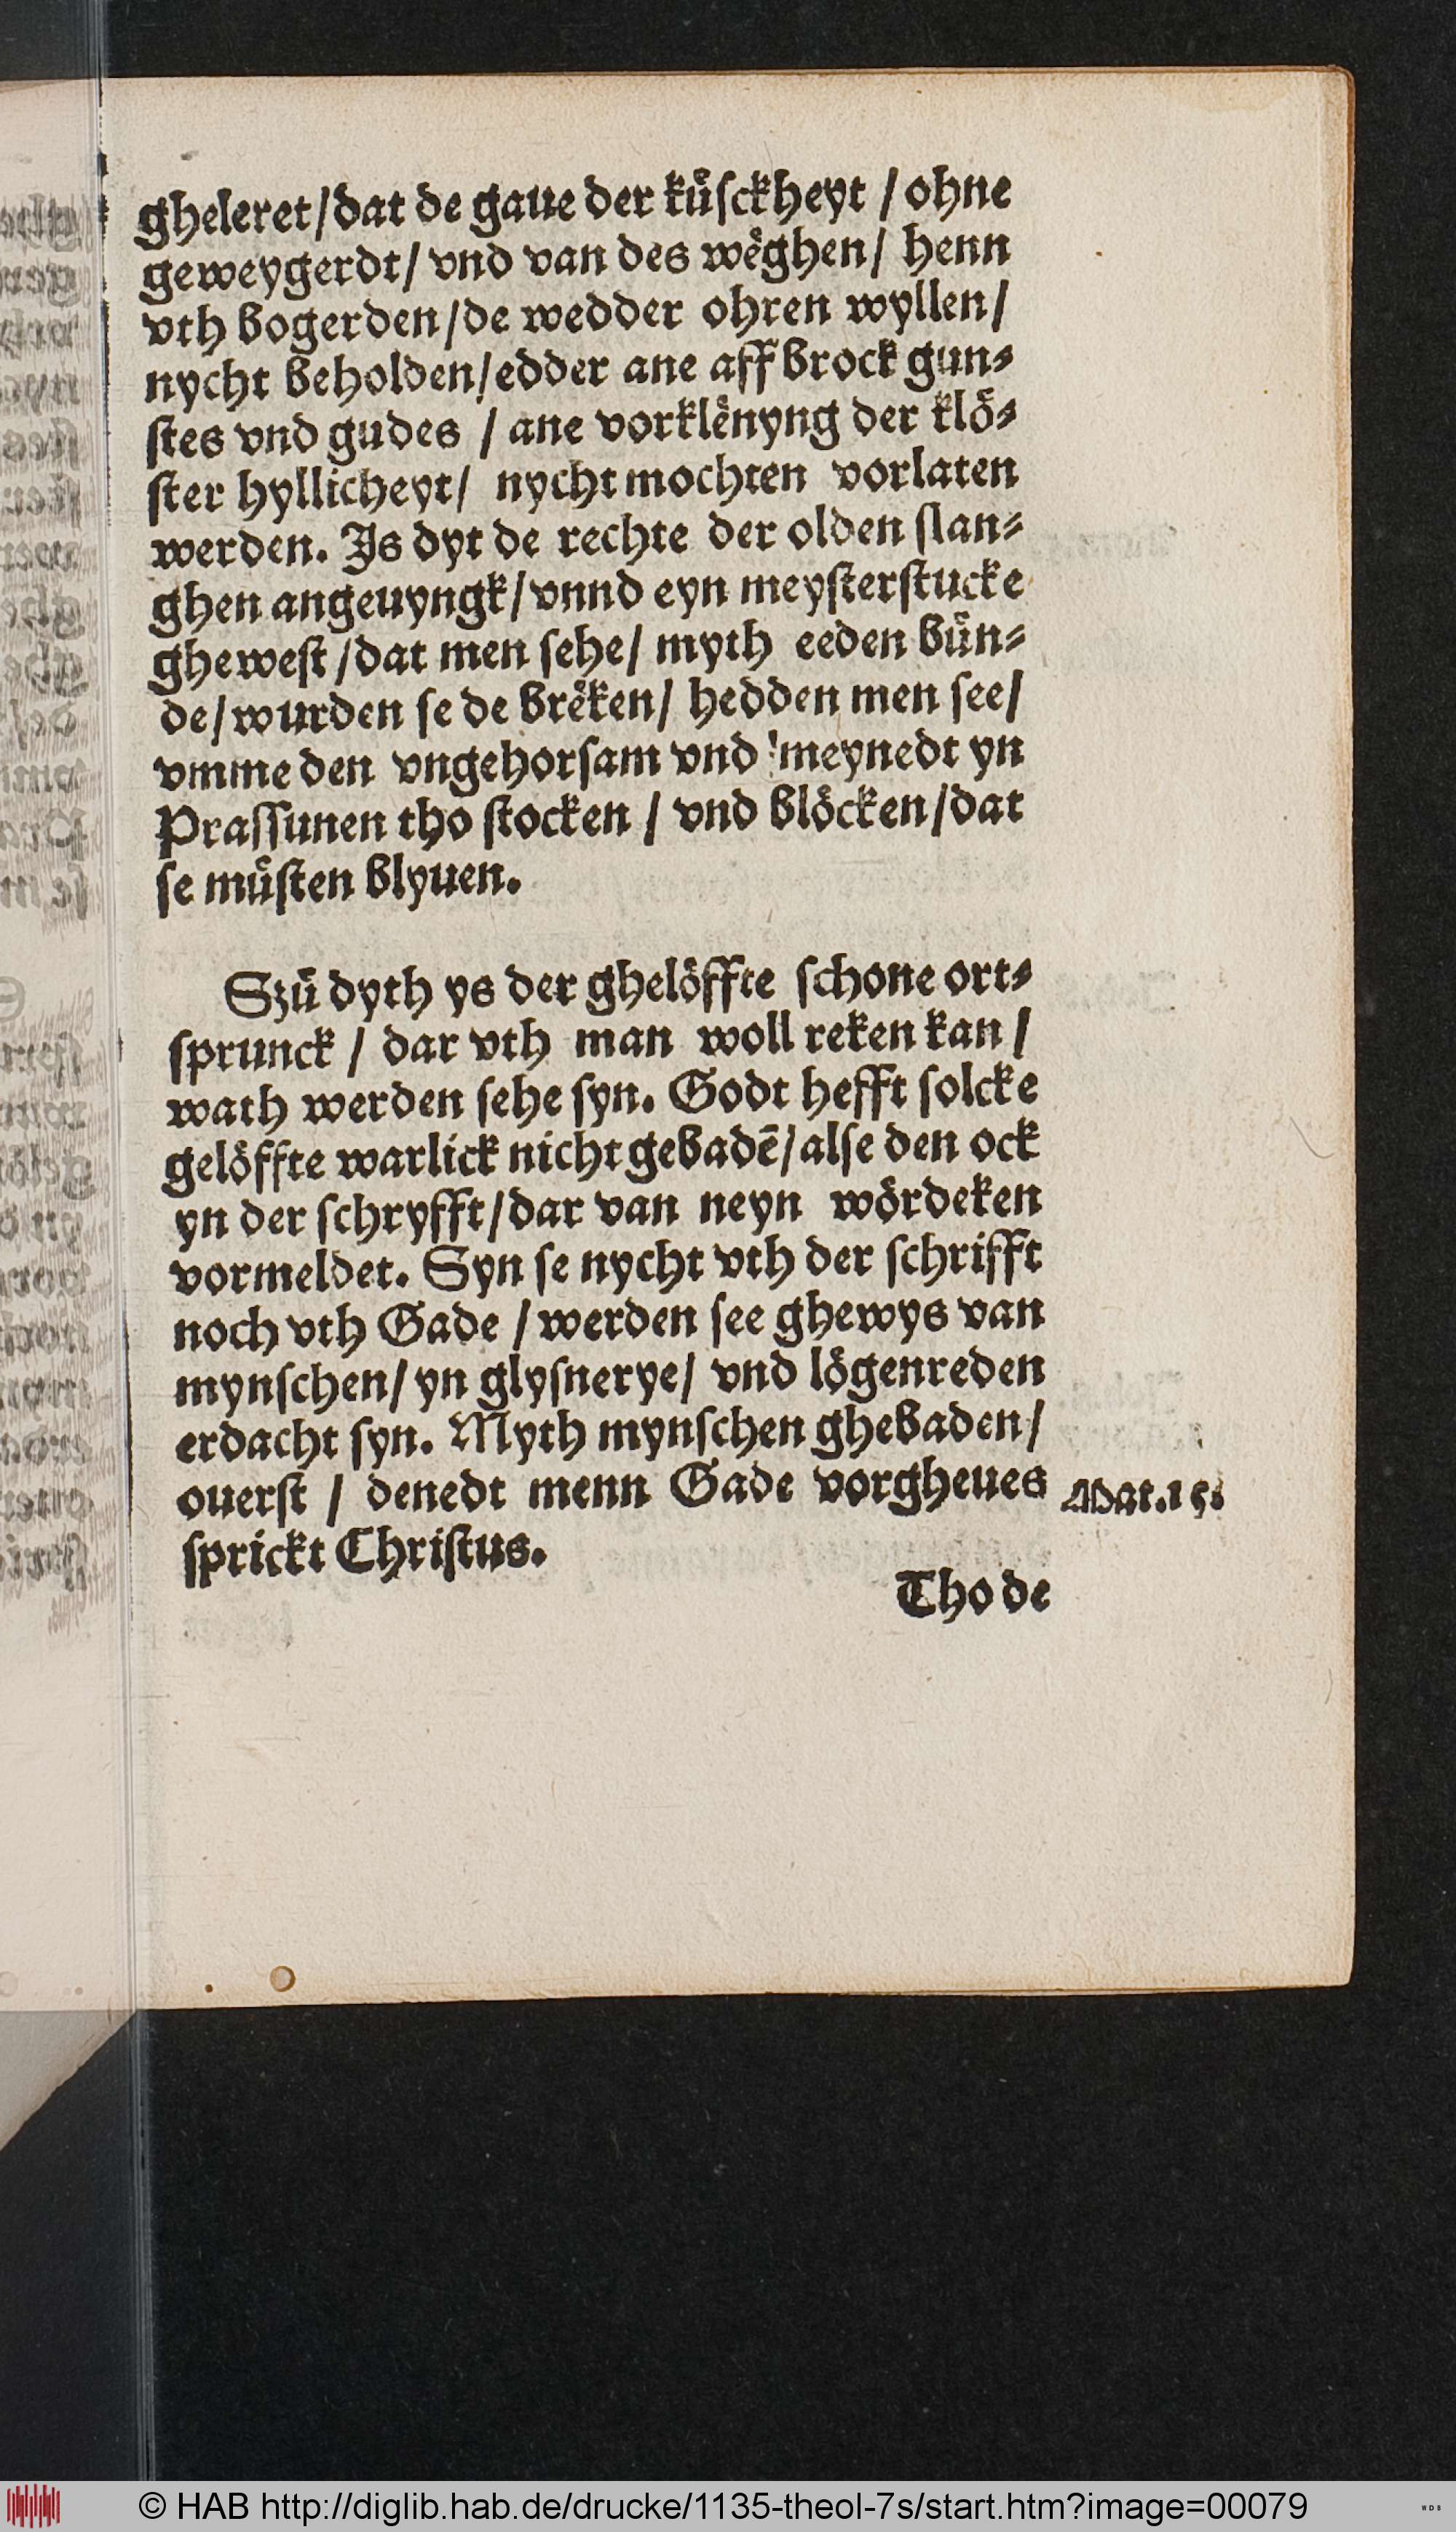 gheleret/dat de gaue der kuͤſckheyt / ohne
geweygerdt/ vnd van des weͤghen/ henn
vth bogerden/de wedder ohren wyllen/
nycht beholden/edder ane affbrock gun⸗
ſtes vnd gudes / ane vorkleͤnyng der kloͤ⸗
ſter hyllicheyt/ nycht mochten vorlaten
werden. Js dyt de rechte der olden ſlan⸗
ghen angeuyngk/vnnd eyn meyſterſtucke
gheweſt/dat men ſehe/ myth eeden buͤn⸗
de/wurden ſe de breͤken/ hedden men ſee/
vmme den vngehorſam vnd meynedt yn
Praſſunen tho ſtocken / vnd bloͤcken/dat
ſe muͤſten blyuen.
Szuͤ dyth ys der gheloͤffte ſchone ort⸗
ſprunck / dar vth man woll reken kan /
wath werden ſehe ſyn. Godt hefft ſolcke
geloͤffte warlick nicht gebadē/alſe den ock
yn der ſchryfft/dar van neyn woͤrdeken
vormeldet. Syn ſe nycht vth der ſchrifft
noch vth Gade / werden ſee ghewys van
mynſchen/ yn glyſnerye/ vnd loͤgenreden
erdacht ſyn. Myth mynſchen ghebaden/
ouerſt / denedt menn Gade vorgheues
Mat.15.
ſprickt Chriſtus.
Tho de
© HAB http://diglib.hab.de/drucke/1135-theol-7s/start.htm?image=00079